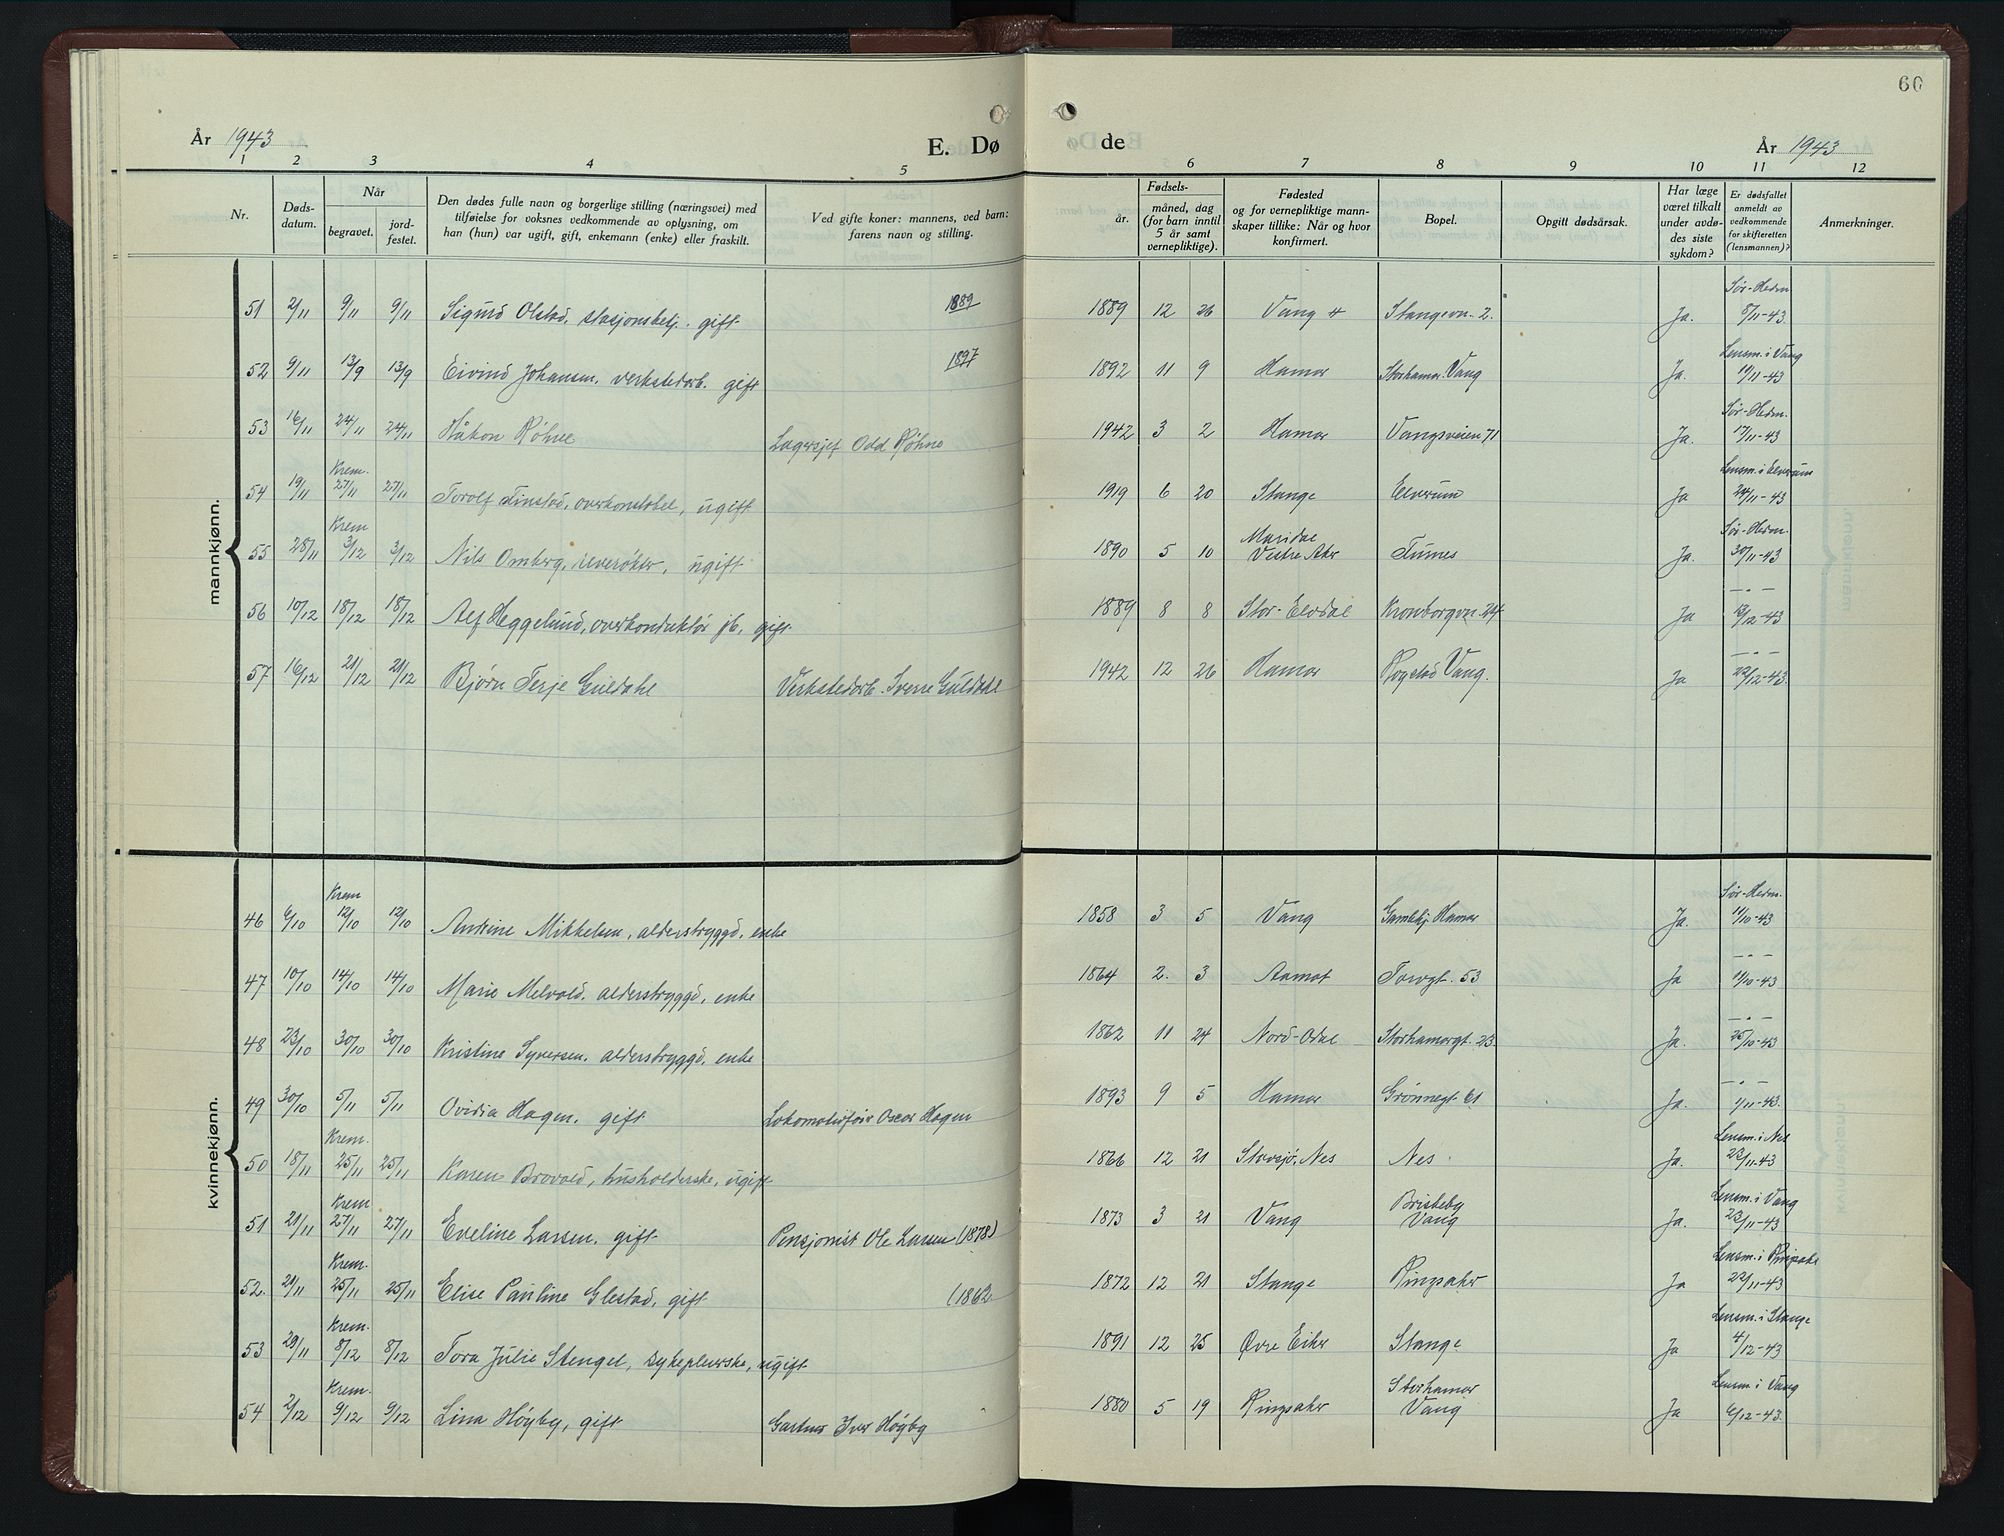 60
År 1943 E. Døde År 1943
1 2 3 4 5 6 7 8 9 10 11 12
Nr. Døds-datum. Når begravet. jord-festet. Den dødes fulle navn og borgerlige stilling (næringsvei) med tilføielse for voksnes vedkommende av oplysning, om han (hun) var ugift, gift, enkemann (enke) eller fraskilt. Ved gifte koner: mannens, ved barn: farens navn og stilling. Fødsels- år. måned, dag (for barn inntil 5 år samt vernepliktige). Fødested og for vernepliktige mann-skaper tillike: Når og hvor konfirmert. Bopel. Opgitt dødsårsak. Har læge været tilkalt under avdø-des siste sykdom? Er dødsfallet anmeldt av vedkommende for skifteretten (lensmannen)? Anmerkninger.
mannkjønn.
51 2/11 9/11 9/11 Sigurd Olstad, stasjonsbetj. gift 1889 1889 12 26 Vang Stangevn. 2. Ja. Sør-Hedm 8/11-43.
52 9/11 13/9 13/9 Eivind Johansen, verkstedarb. gift 1897 1892 11 9 Hamar Storhamar. Vang Ja. Lensm. i Vang 11/11-43
53 16/11 24/11 24/11 Håkon Røhne Lagersjef Odd Røhne 1942 3 2 Hamar Vangsveien 71 Ja. Sør-Hedm. 17/11-43
54 19/11 Krem. 27/11 27/11 Torolf Finstad, overkonstabel, ugift 1919 6 20 Stange Elverum Ja Lensm. i Elverum 24/11-43
55 28/11 Krem 3/12 3/12 Nils Omberg, reverøkter, ugift 1890 5 10 Maridal Vestre Aker Furnes Ja. Sør-Hedm. 30/11-43
56 10/12 18/12 18/12 Alf Heggelund, overkonduktør jb, gift 1889 8 8 Stor-Elvdal Kronborgvn. 24 Ja —.— /12-43
57 16/12 21/12 21/12 Bjørn Terje Guldahl Verkstedarb. Sverre Guldahl 1942 12 26 Hamar Rogstad Vang. Ja —.— 22/12-43.
kvinnekjønn.
46 6/10 Krem 12/10 12/10 Andrine Mikkelsen, alderstrygd, enke 1858 3 5 Vang Gamlehj. Hamar Ja. Sør-Hedm. 11/10-43
47 10/10 14/10 14/10 Marie Melvold. alderstrygd, enke 1864 2. 3 Aamot Torvgt. 53 Ja —.— 11/10-43
48 23/10 30/10 30/10 Kristine Syversen. alderstrygd, enke 1862 11 24 Nord-Odal Storhamargt. 23 Ja. —.— 25/10-43
49 30/10 5/11 5/11 Ovidia Hagen. gift Lokomotivfører Oscar Hagen 1893 9 5 Hamar Grønnegt. 61 Ja. —.— 1/11-43.
50 18/11 Krem. 25/11 25/11 Karen Brovold, husholderske, ugift 1866 12 21 Stavsjø, Nes Nes. Ja. Lensm. i Nes 23/11-43
51 21/11 Krem 27/11 27/11 Eveline Larsen. gift Pensjonist Ole Larsen (1878) 1873 3 21 Vang Briskeby Vang Ja. Lensm. i Vang 23/11-43
52. 21/11 Krem. 25/11 25/11 Elise Pauline Glestad, gift (1862 1872 12 21 Stange Ringsaker Ja Lensm. i Ringsaker 22/11-43
53 29/11 Krem. 8/12 8/12 Tora Julie Stengel, sykepleierske, ugift 1891 12 25 Øvre Eiker Stange Ja Lensm. i Stange 4/12-43
54 2/12 Krem. 9/12 9/12 Lina Høyby, gift Gartner Iver Høyby 1880 5 19 Ringsaker Storhamar Vang Ja Lensm. i Vang 6/12-43.